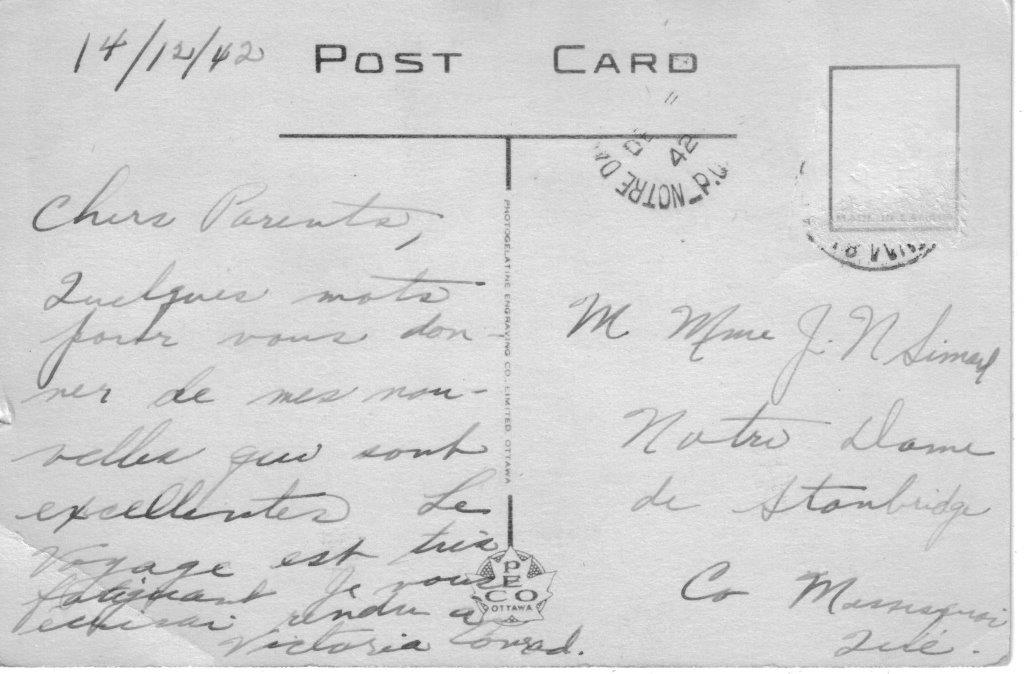 14/12/42
POST CARD
NOTRE DA
DE
42
P.Q
MADE IN CANADA
Chers Parents,
Quelques mots
pour vous don-
ner de mes nou-
velles qui sont
excellentes Le
Voyage est très
fatiguant Je vous
écrirai rendu a
Victoria Conrad.
PHOTOGELATINE ENGRAVING CO. LIMITED. OTTAWA
PECO
OTTAWA
M Mme J. N Simard
Notre Dame
de Stanbridge
Co Missisquoi
Qué.